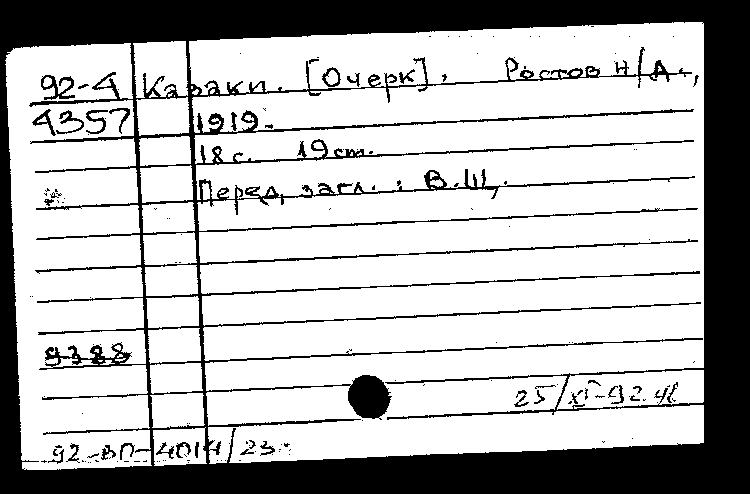 92-4 Караки. [Очерк]. Ростов н/Д.,
4357 1919.
18 с. 19 cm.
Перед загл.: В.Щ.
9388
25/XI-92.
92-вп-4014/23